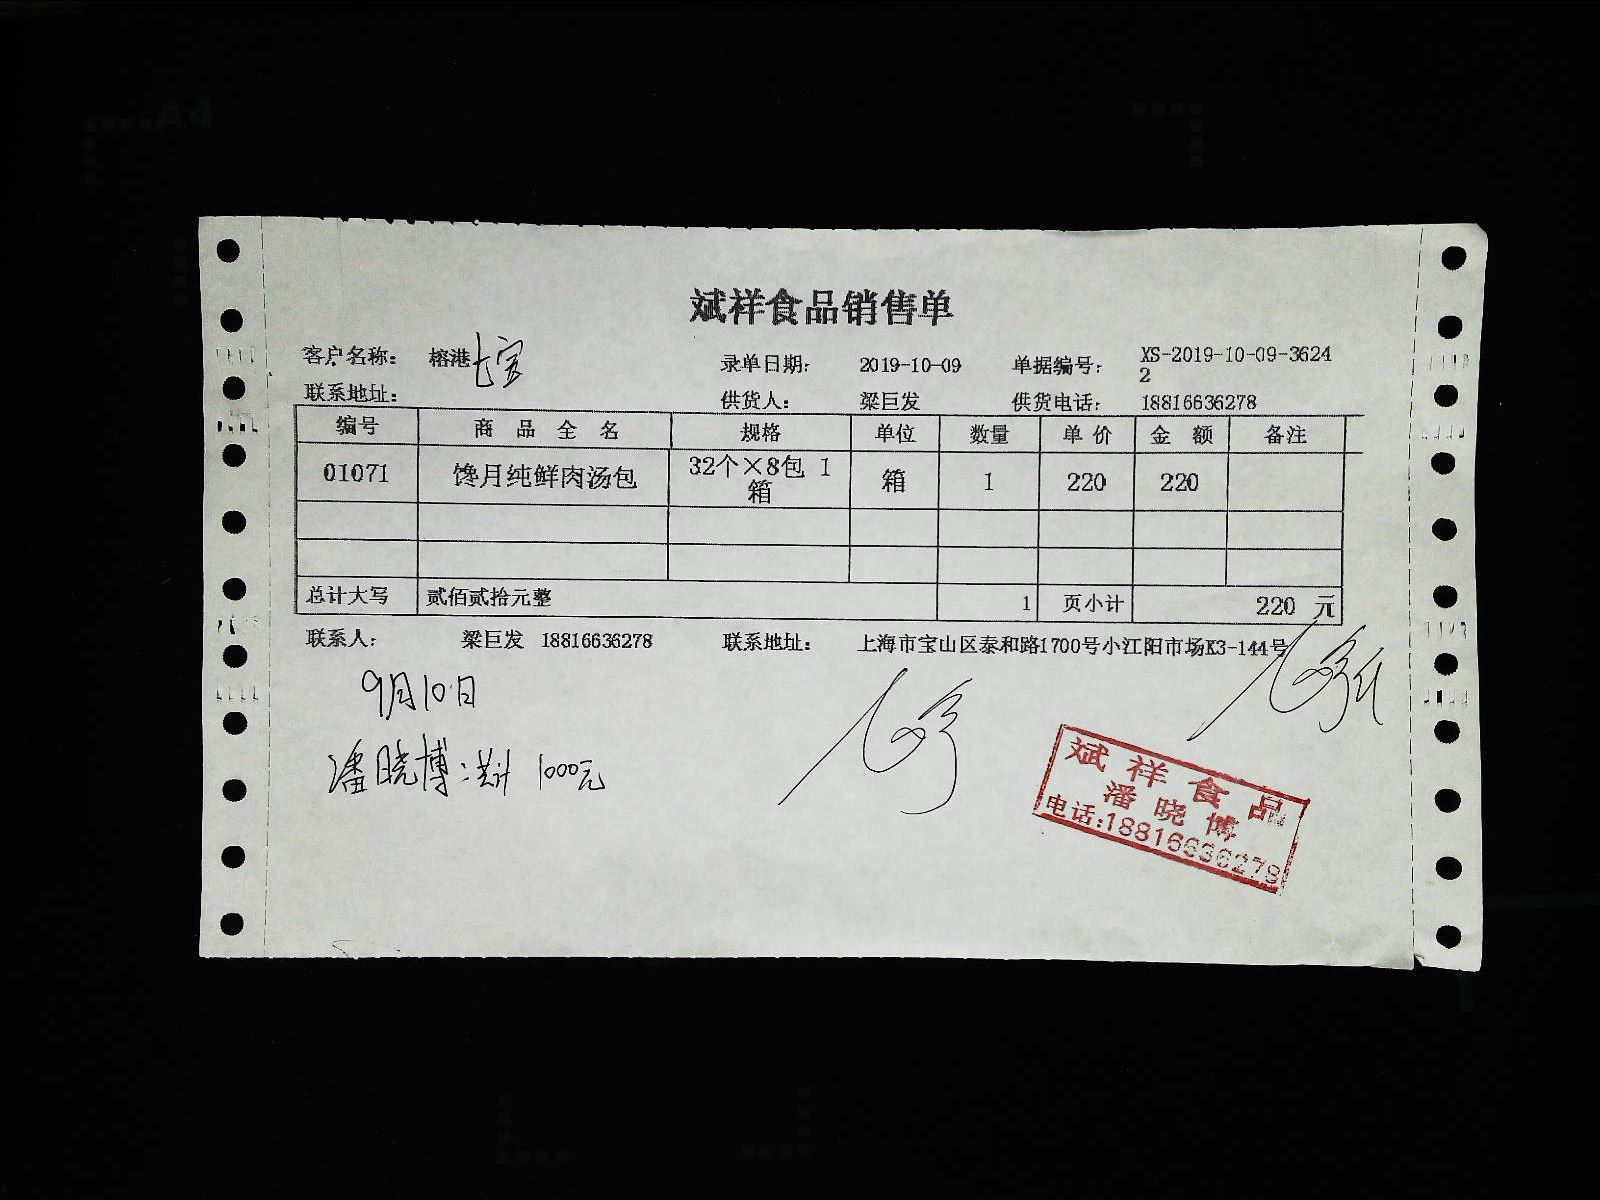 斌祥食品销售单
客户名称： 榕港七宝 录单日期： 2019-10-09 单据编号： XS-2019-10-09-3624
2
联系地址： 供货人： 梁巨发 供货电话： 18816636278
编号 商品全名 规格 单位 数量 单价 金额 备注
01071 馋月纯鲜肉汤包 32个×8包 1 箱 1 220 220
箱
总计大写 贰佰贰拾元整 1 页小计 220 元
联系人： 梁巨发 18816636278 联系地址： 上海市宝山区泰和路1700号小江阳市场K3-144号
9月10日
潘晓博：共计 1000元
斌祥食品
潘晓博
电话:18816636278